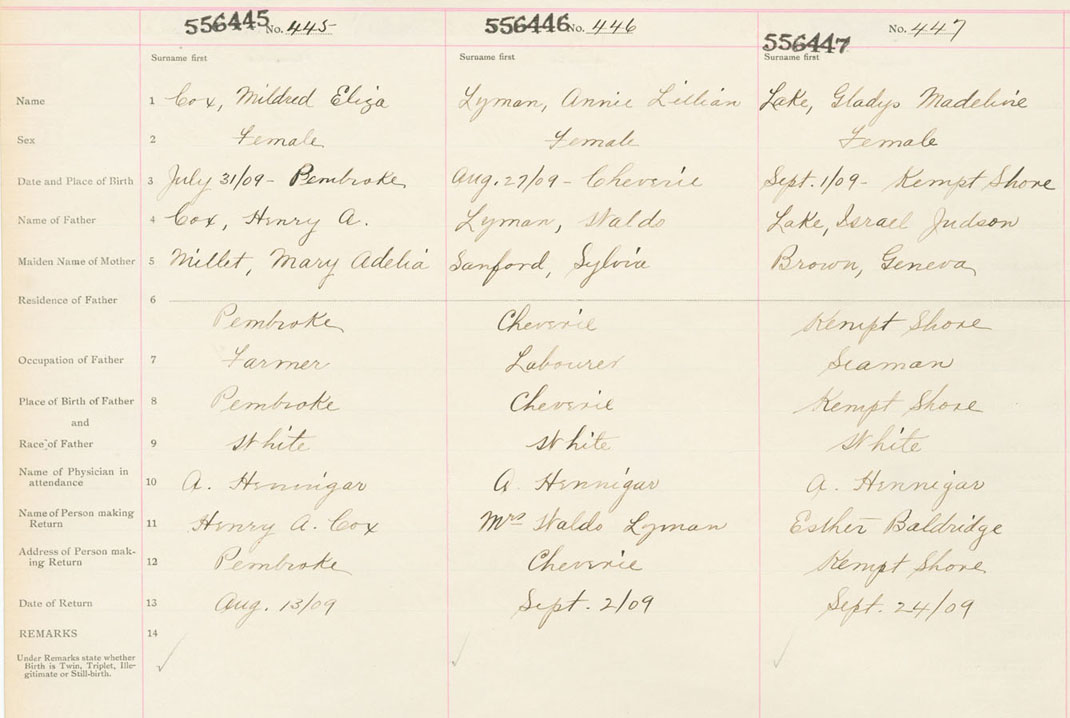 556445 No. 445 556446 No. 446 556447 No. 447
Surname first Surname first Surname first
Name 1 Cox, Mildred Eliza Lyman, Annie Lillian Lake, Gladys Madeline
Sex 2 Female Female Female
Date and Place of Birth 3 July 31/09 - Pembroke Aug. 27/09 - Cheverie Sept. 1/09 - Kempt Shore
Name of Father 4 Cox, Henry A. Lyman, Waldo Lake, Israel Judson
Maiden Name of Mother 5 Millet, Mary Adelia Sanford, Sylvia Brown, Geneva
Residence of Father 6
Pembroke Cheverie Kempt Shore
Occupation of Father 7 Farmer Labourer Seaman
Place of Birth of Father 8 Pembroke Cheverie Kempt Shore
and
Race of Father 9 White White White
Name of Physician in
attendance 10 A. Hennigar A. Hennigar A. Hennigar
Name of Person making
Return 11 Henry A. Cox Mrs Waldo Lyman Esther Baldridge
Address of Person mak-
ing Return 12 Pembroke Cheverie Kempt Shore
Date of Return 13 Aug. 13/09 Sept. 2/09 Sept. 24/09
REMARKS 14
Under Remarks state whether
Birth is Twin, Triplet, Ille-
gitimate or Still-birth.